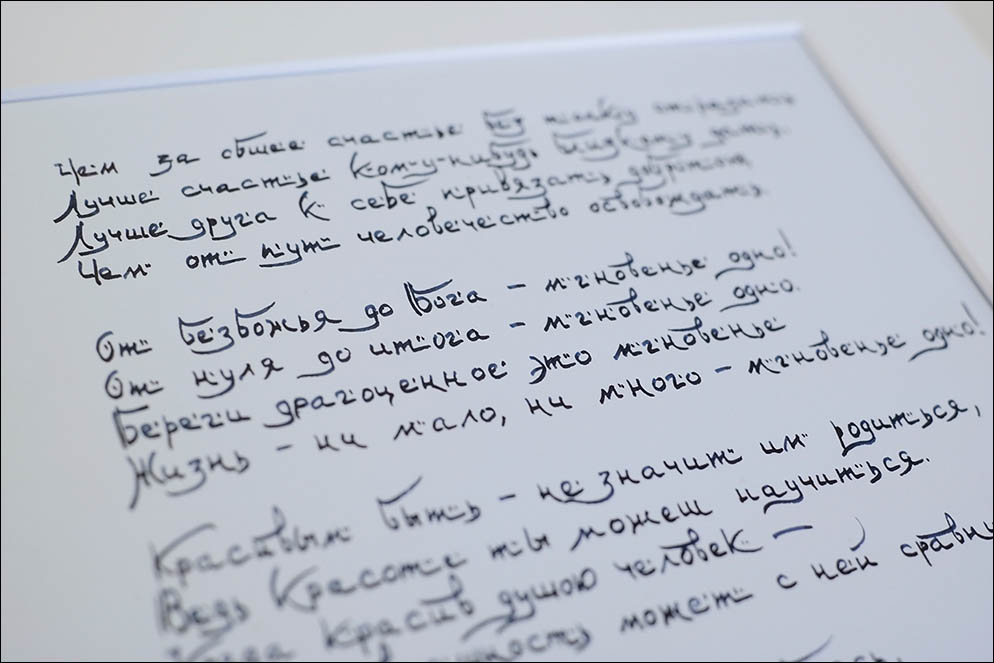 Чем за общее счастье без толку страдать
Лучше счастье кому-нибудь близкому дать.
Лучше друга к себе привязать добротою
Чем от пут человечество освобождать.
От безбожья до Бога – мгновенье одно!
От нуля до итога – мгновенье одно.
Береги драгоценное это мгновенье
Жизнь – ни мало, ни много – мгновенье одно!
Красивым быть – не значит им родиться,
Ведь Красоте ты можеш научиться.
Когда красив душою человек –
может с ней